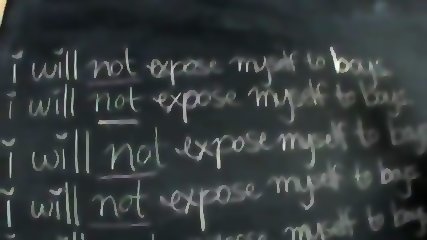 i will not expose myself to boys
i will not expose myself to boys
i will not expose myself to boys
i will not expose myself to boys
i will not expose myself to boys